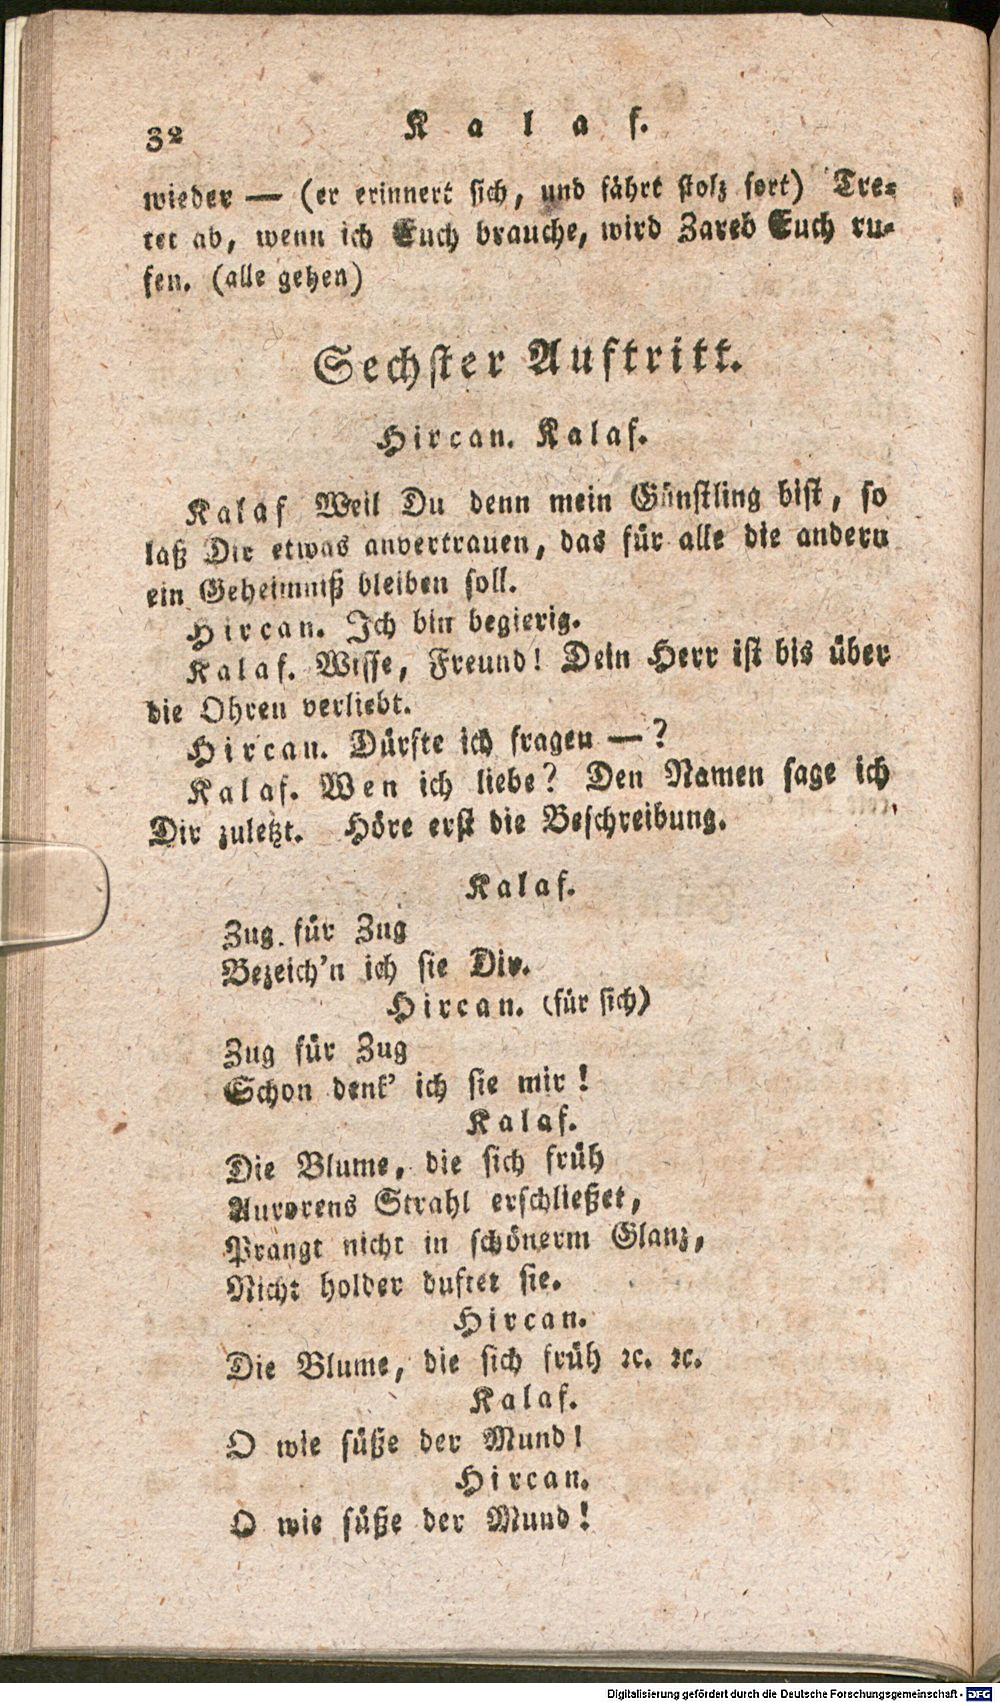 32 Kalaf.
wieder — (er erinnert sich, und fährt stolz fort) Tre-
tet ab, wenn ich Euch brauche, wird Zareb Euch ru-
fen. (alle gehen)
Sechster Auftritt.
Hircan. Kalaf.
Kalaf Weil Du denn mein Günstling bist, so
laß Dir etwas anvertrauen, das für alle die andern
ein Geheimniß bleiben soll.
Hircan. Ich bin begierig.
Kalaf. Wisse, Freund! Dein Herr ist bis über
die Ohren verliebt.
Hircan. Dürfte ich fragen — ?
Kalaf. Wen ich liebe? Den Namen sage ich
Dir zuletzt. Höre erst die Beschreibung.
Kalaf.
Zug für Zug
Bezeich'n ich sie Dir.
Hircan. (für sich)
Zug für Zug
Schon denk' ich sie mir!
Kalaf.
Die Blume, die sich früh
Aurorens Strahl erschließet,
Prangt nicht in schönerm Glanz,
Nicht holder duftet sie.
Hircan.
Die Blume, die sich früh ꝛc. ꝛc.
Kalaf.
O wie süße der Mund!
Hircan.
O wie süße der Mund!
Digitalisierung gefördert durch die Deutsche Forschungsgemeinschaft - DFG